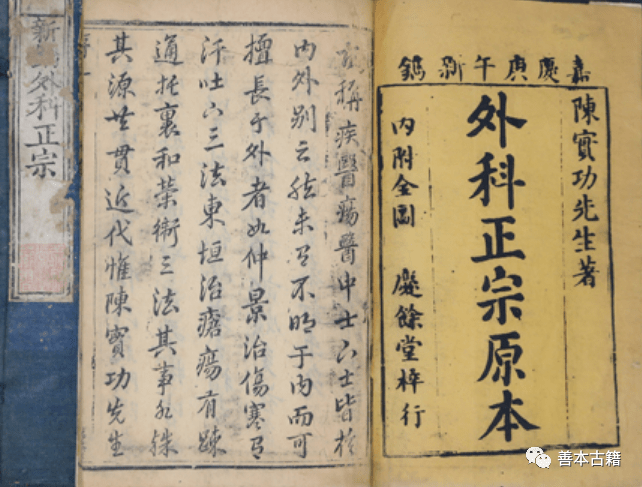 嘉慶庚午新鐫
陳實功先生著
外科正宗原本
内附全圖 餘堂梓行
稱疾醫瘍醫中士下士皆於
内外别云然未有不明于内而可
擅長于外者如仲景治傷寒有
汗吐下三法東垣治瘡瘍有疎
通托裏和榮衛三法其事雖殊
其源共貫近代惟陳實功先生
新外科正宗
善本古籍